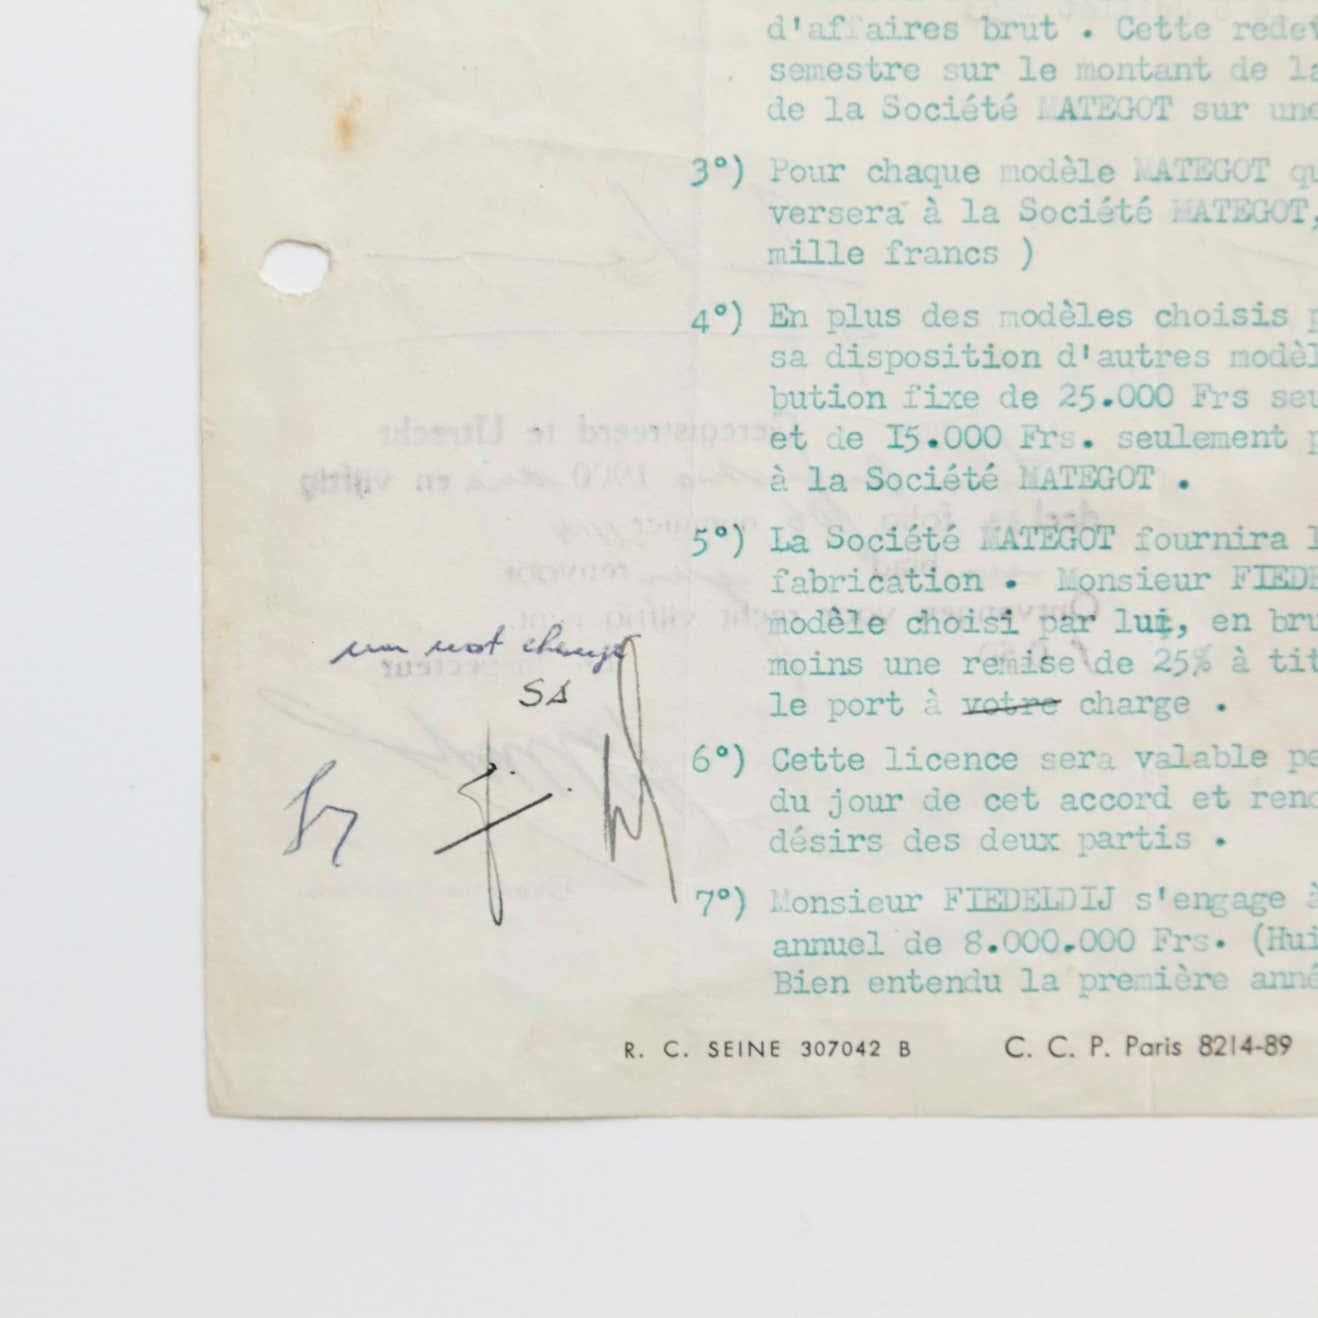 d'affaires brut . Cette redev
semestre sur le montant de la
de la Société MATEGOT sur une
3°) Pour chaque modèle MATEGOT qu
versera à la Société MATEGOT,
mille francs )
4°) En plus des modèles choisis p
sa disposition d'autres modèl
bution fixe de 25.000 Frs seu
et de I5.000 Frs. seulement p
à la Société MATEGOT .
5°) La Société MATEGOT fournira l
fabrication . Monsieur FIEDE
modèle choisi par lui, en bru
moins une remise de 25% à tit
le port à votre charge .
6°) Cette licence sera valable pe
du jour de cet accord et reno
désirs des deux partis .
7°) Monsieur FIEDELDIJ s'engage à
annuel de 8.000.000 Frs. (Hui
Bien entendu la première anné
un mot change
SA
R. C. SEINE 307042 B C. C. P. Paris 8214-89
Geregistreerd te Utrecht